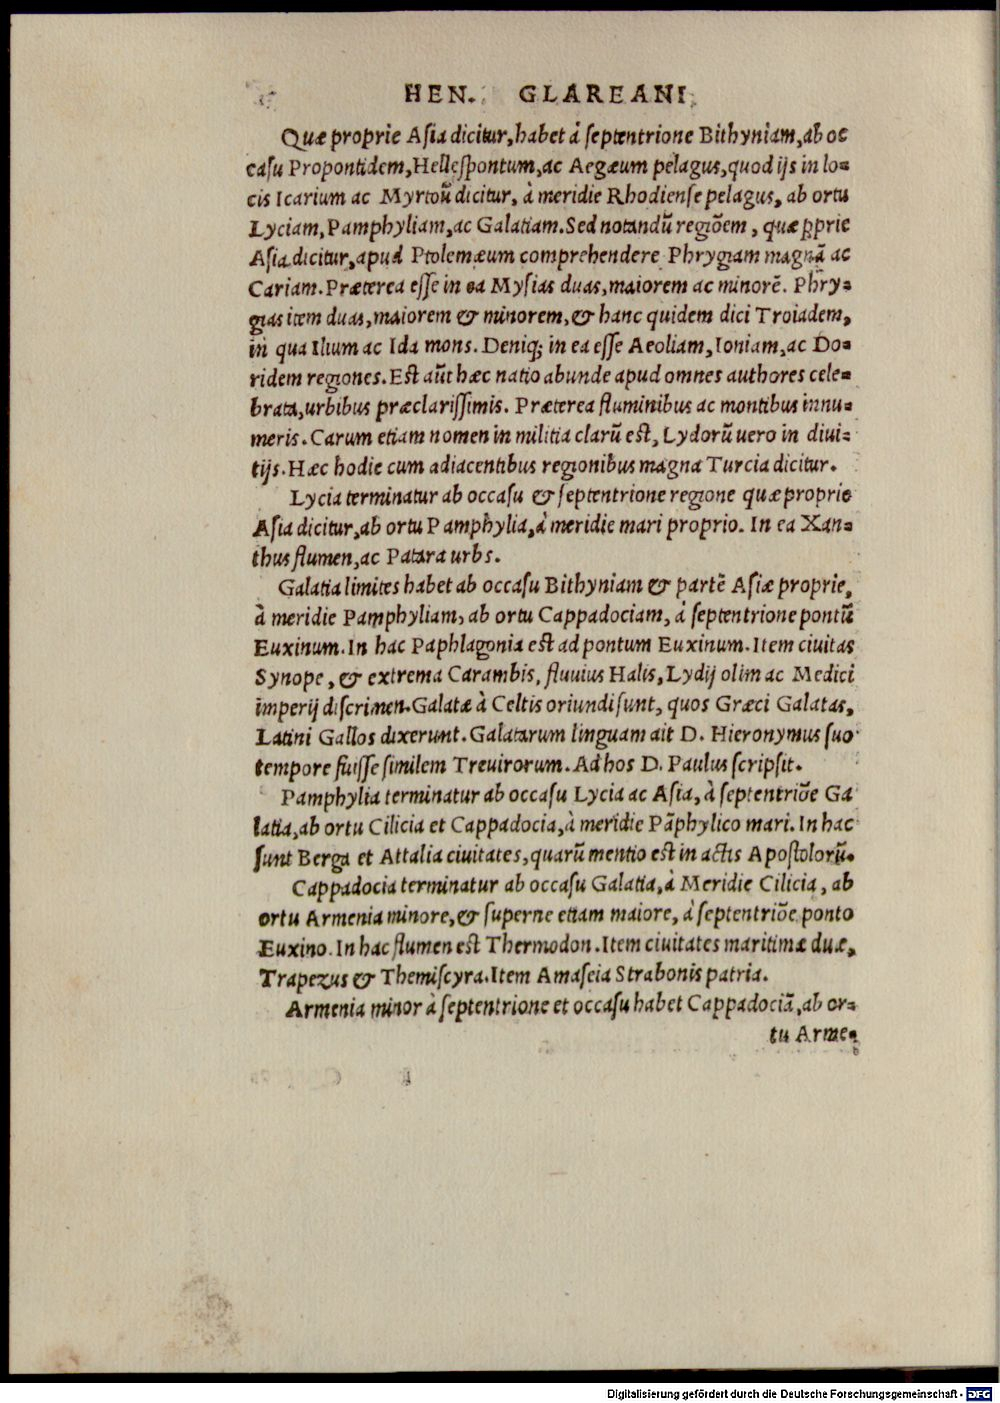 HEN. GLAREANI
Quæ proprie Asia dicitur, habet à septentrione Bithyniam, ab oc
casu Propontidem, Hellespontum, ac Aegæum pelagus, quod ijs in lo-
cis Icarium ac Myrtoũ dicitur, à meridie Rhodiense pelagus, ab ortu
Lyciam, Pamphyliam, ac Galatiam. Sed notandũ regiõem, quæ ꝓprie
Asia dicitur, apud Ptolemæum comprehendere Phrygiam magnã ac
Cariam. Præterea esse in ea Mysias duas, maiorem ac minorẽ. Phry-
gias item duas, maiorem & minorem, & hanc quidem dici Troiadem,
in qua Ilium ac Ida mons. Deniq; in ea esse Aeoliam, Ioniam, ac Do-
ridem regiones. Est aũt hæc natio abunde apud omnes authores cele-
brata, urbibus præclarissimis. Præterea fluminibus ac montibus innu-
meris. Carum etiam nomen in militia clarũ est, Lydorũ uero in diui-
tijs. Hæc hodie cum adiacentibus regionibus magna Turcia dicitur.
Lycia terminatur ab occasu & septentrione regione quæ proprie
Asia dicitur, ab ortu Pamphylia, à meridie mari proprio. In ea Xan-
thus flumen, ac Patara urbs.
Galatia limites habet ab occasu Bithyniam & partẽ Asiæ proprie,
à meridie Pamphyliam, ab ortu Cappadociam, à septentrione pontũ
Euxinum. In hac Paphlagonia est ad pontum Euxinum. Item ciuitas
Synope, & extrema Carambis, fluuius Halis, Lydij olim ac Medici
imperij discrimen. Galatæ à Celtis oriundi sunt, quos Græci Galatas,
Latini Gallos dixerunt. Galatarum linguam ait D. Hieronymus suo
tempore fuisse similem Treuirorum. Ad hos D. Paulus scripsit.
Pamphylia terminatur ab occasu Lycia ac Asia, à septentriõe Ga
latia, ab ortu Cilicia et Cappadocia, à meridie Pãphylico mari. In hac
sunt Berga et Attalia ciuitates, quarũ mentio est in actis Apostolorũ.
Cappadocia terminatur ab occasu Galatia, à Meridie Cilicia, ab
ortu Armenia minore, & superne etiam maiore, à septentriõe ponto
Euxino. In hac flumen est Thermodon. Item ciuitates maritimæ duæ,
Trapezus & Themiscyra. Item Amaseia Strabonis patria.
Armenia minor à septentrione et occasu habet Cappadociã, ab or-
tu Arme-
Digitalisierung gefördert durch die Deutsche Forschungsgemeinschaft - DFG